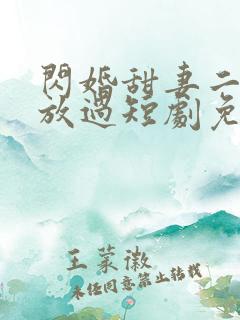 閃婚甜妻二
放過短劇免
王菓徽
未經同意禁止轉載